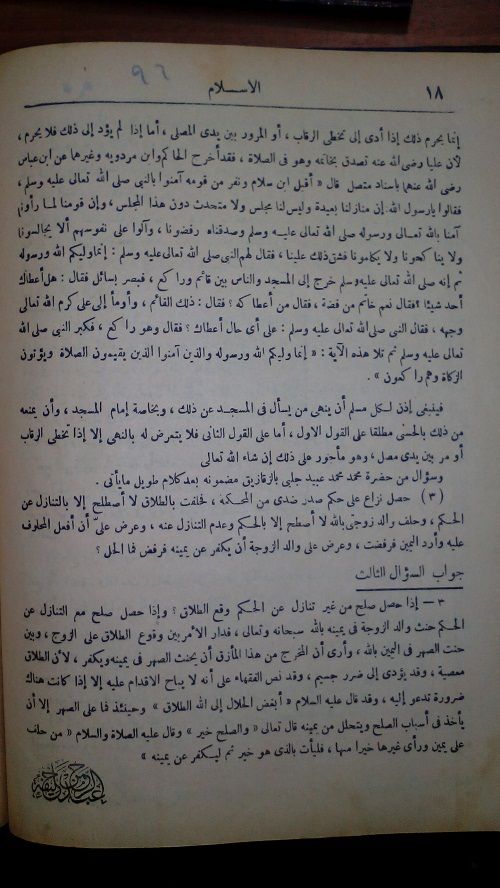 ٩٦
١٨
الاسلام
إنما يحرم ذلك إذا أدى إلى تخطى الرقاب ، أو المرور بين يدى المصلى ، أما إذا لم يؤد إلى ذلك فلا يحرم ،
لأن عليا رضى الله عنه تصدق بخاتمه وهو فى الصلاة ، فقد أخرج الحاكم وابن مردويه وغيرهما عن ابن عباس
رضى الله عنهما باسناد متصل قال « أقبل ابن سلام ونفر من قومه آمنوا بالنبى صلى الله تعالى عليه وسلم ،
فقالوا يا رسول الله إن منازلنا بعيدة وليس لنا مجلس ولا متحدث دون هذا المجلس ، وإن قومنا لما رأونا
آمنا بالله تعالى ورسوله صلى الله تعالى عليه وسلم وصدقناه رفضونا ، وآلوا على نفوسهم ألا يجالسونا
ولا يناكحونا ولا يكلمونا فشق ذلك علينا ، فقال لهم النبى صلى الله تعالى عليه وسلم : إنما وليكم الله ورسوله
ثم إنه صلى الله تعالى عليه وسلم خرج إلى المسجد والناس بين قائم وراكع ، فبصر بسائل فقال : هل أعطاك
أحد شيئا ؟ فقال نعم خاتم من فضة ، فقال من أعطاكه ؟ فقال : ذلك القائم ، وأومأ إلى على كرم الله تعالى
وجهه ، فقال النبى صلى الله تعالى عليه وسلم : على أى حال أعطاك ؟ فقال وهو راكع ، فكبر النبى صلى الله
تعالى عليه وسلم ثم تلا هذه الآية : « إنما وليكم الله ورسوله والذين آمنوا الذين يقيمون الصلاة ويؤتون
الزكاة وهم راكعون » .
فينبغى إذن لكل مسلم أن ينهى من يسأل فى المسجد عن ذلك ، وبخاصة إمام المسجد ، وأن يمنعه
من ذلك بالحسنى مطلقا على القول الاول ، أما على القول الثانى فلا يتعرض له بالنهى إلا إذا تخطى الرقاب
أو مر بين يدى مصل ، وهو مأجور على ذلك إن شاء الله تعالى
وسؤال من حضرة محمد محمد عبيد جلبى بالزقازيق مضمونه بعد كلام طويل ما يأتى .
( ٣ ) حصل نزاع على حكم صدر ضدى من المحكمة ، فحلفت بالطلاق لا أصطلح إلا بالتنازل عن
الحكم ، وحلف والد زوجتى بالله لا أصطلح إلا بالحكم وعدم التنازل عنه ، وعرض علىّ أن أفعل المحلوف
عليه وأرد اليمين فرفضت ، وعرض على والد الزوجة أن يكفر عن يمينه فرفض فما الحل ؟
جواب السؤال الثالث
٣ — إذا حصل صلح من غير تنازل عن الحكم وقع الطلاق ؟ وإذا حصل صلح مع التنازل عن
الحكم حنث والد الزوجة فى يمينه بالله سبحانه وتعالى ، فدار الأمر بين وقوع الطلاق على الزوج ، وبين
حنث الصهر فى اليمين بالله ، وأرى أن المخرج من هذا المأزق أن يحنث الصهر فى يمينه ويكفر ، لأن الطلاق
معصية ، وقد يؤدى إلى ضرر جسيم ، وقد نص الفقهاء على أنه لا يباح الاقدام عليه إلا إذا كانت هناك
ضرورة تدعو إليه ، وقد قال عليه السلام « أبغض الحلال إلى الله الطلاق » وحينئذ فما على الصهر إلا أن
يأخذ فى أسباب الصلح ويتحلل من يمينه قال تعالى « والصلح خير » وقال عليه الصلاة والسلام « من حلف
على يمين ورأى غيرها خيرا منها ، فليأت بالذى هو خير ثم ليكفر عن يمينه »